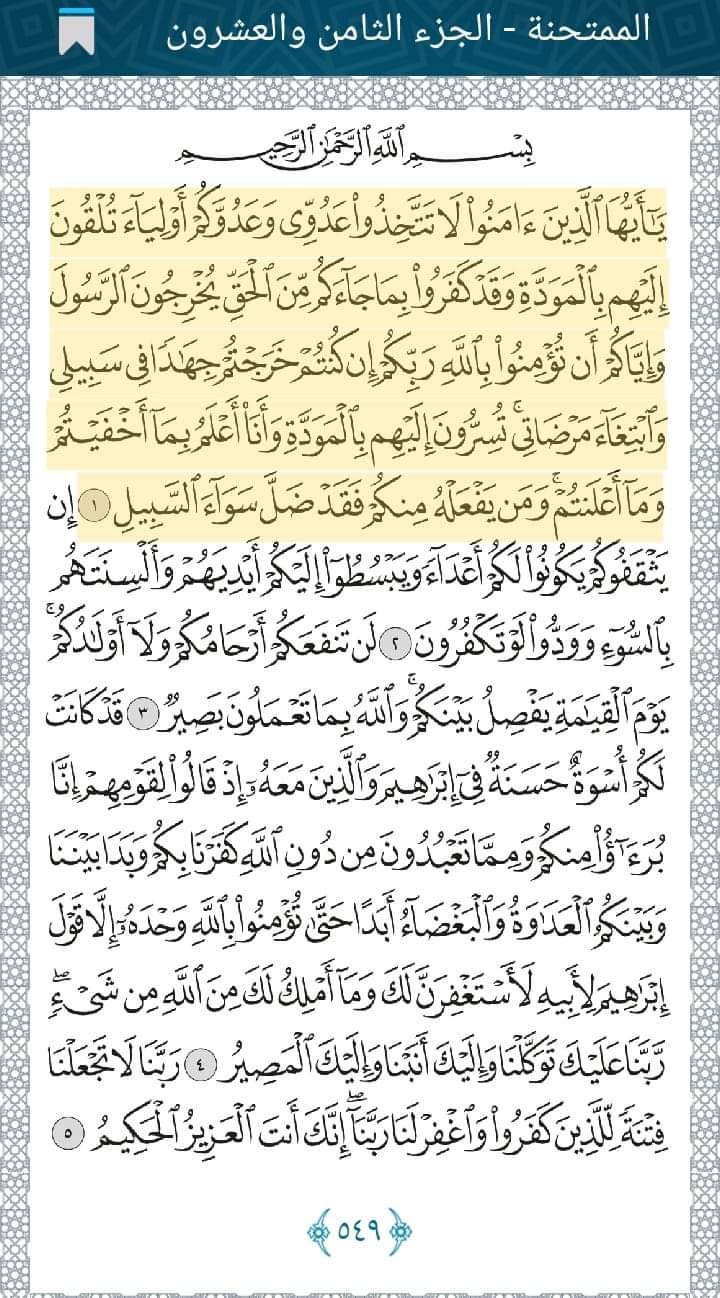 الممتحنة - الجزء الثامن والعشرون
بِسْمِ ٱللَّهِ ٱلرَّحْمَٰنِ ٱلرَّحِيمِ
يَٰٓأَيُّهَا ٱلَّذِينَ ءَامَنُوا۟ لَا تَتَّخِذُوا۟ عَدُوِّى وَعَدُوَّكُمْ أَوْلِيَآءَ تُلْقُونَ
إِلَيْهِم بِٱلْمَوَدَّةِ وَقَدْ كَفَرُوا۟ بِمَا جَآءَكُم مِّنَ ٱلْحَقِّ يُخْرِجُونَ ٱلرَّسُولَ
وَإِيَّاكُمْ أَن تُؤْمِنُوا۟ بِٱللَّهِ رَبِّكُمْ إِن كُنتُمْ خَرَجْتُمْ جِهَٰدًا فِى سَبِيلِى
وَٱبْتِغَآءَ مَرْضَاتِى ۚ تُسِرُّونَ إِلَيْهِم بِٱلْمَوَدَّةِ وَأَنَا۠ أَعْلَمُ بِمَآ أَخْفَيْتُمْ
وَمَآ أَعْلَنتُمْ ۚ وَمَن يَفْعَلْهُ مِنكُمْ فَقَدْ ضَلَّ سَوَآءَ ٱلسَّبِيلِ ١ إِن
يَثْقَفُوكُمْ يَكُونُوا۟ لَكُمْ أَعْدَآءً وَيَبْسُطُوٓا۟ إِلَيْكُمْ أَيْدِيَهُمْ وَأَلْسِنَتَهُم
بِٱلسُّوٓءِ وَوَدُّوا۟ لَوْ تَكْفُرُونَ ٢ لَن تَنفَعَكُمْ أَرْحَامُكُمْ وَلَآ أَوْلَٰدُكُمْ ۚ
يَوْمَ ٱلْقِيَٰمَةِ يَفْصِلُ بَيْنَكُمْ ۚ وَٱللَّهُ بِمَا تَعْمَلُونَ بَصِيرٌ ٣ قَدْ كَانَتْ
لَكُمْ أُسْوَةٌ حَسَنَةٌ فِىٓ إِبْرَٰهِيمَ وَٱلَّذِينَ مَعَهُۥٓ إِذْ قَالُوا۟ لِقَوْمِهِمْ إِنَّا
بُرَءَٰٓؤُا۟ مِنكُمْ وَمِمَّا تَعْبُدُونَ مِن دُونِ ٱللَّهِ كَفَرْنَا بِكُمْ وَبَدَا بَيْنَنَا
وَبَيْنَكُمُ ٱلْعَدَٰوَةُ وَٱلْبَغْضَآءُ أَبَدًا حَتَّىٰ تُؤْمِنُوا۟ بِٱللَّهِ وَحْدَهُۥٓ إِلَّا قَوْلَ
إِبْرَٰهِيمَ لِأَبِيهِ لَأَسْتَغْفِرَنَّ لَكَ وَمَآ أَمْلِكُ لَكَ مِنَ ٱللَّهِ مِن شَىْءٍ ۖ
رَّبَّنَا عَلَيْكَ تَوَكَّلْنَا وَإِلَيْكَ أَنَبْنَا وَإِلَيْكَ ٱلْمَصِيرُ ٤ رَبَّنَا لَا تَجْعَلْنَا
فِتْنَةً لِّلَّذِينَ كَفَرُوا۟ وَٱغْفِرْ لَنَا رَبَّنَآ ۖ إِنَّكَ أَنتَ ٱلْعَزِيزُ ٱلْحَكِيمُ ٥
٥٤٩